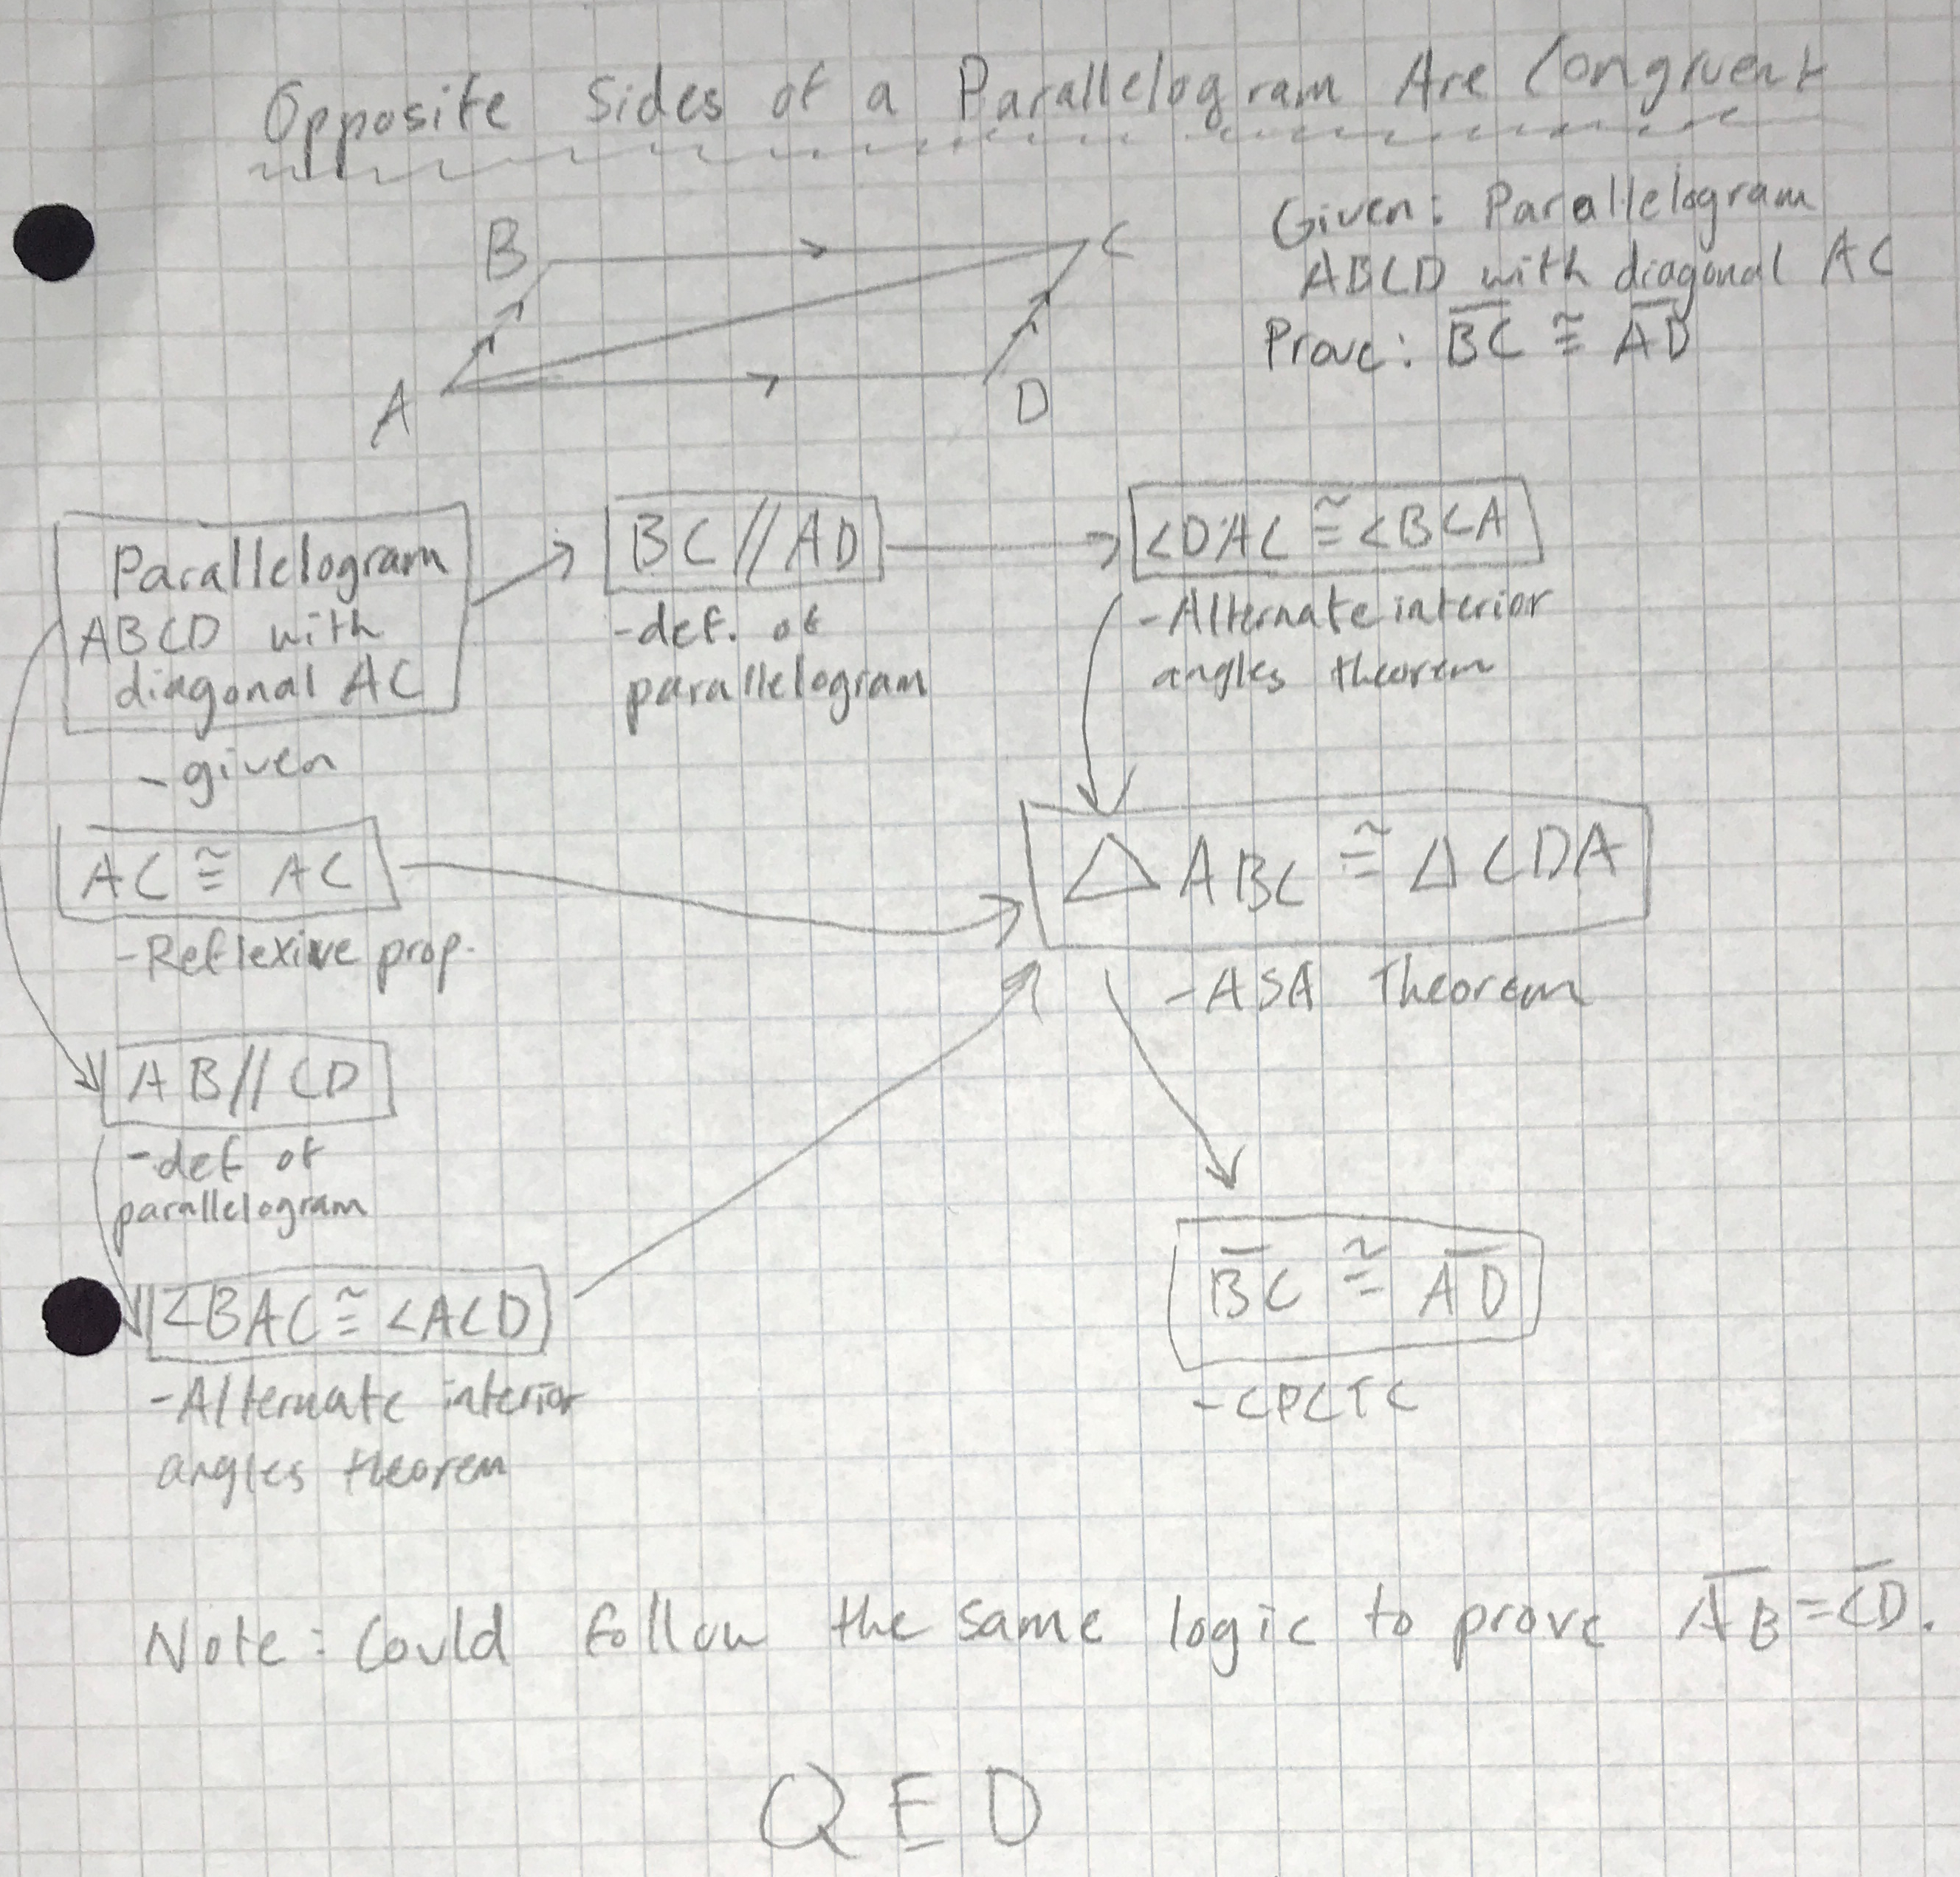 Opposite Sides of a Parallelogram Are Congruent
Given: Parallelogram
ABCD with diagonal AC
Prove: B̅C̅ ≅ A̅D̅
B
C
A
D
Parallelogram
ABCD with
diagonal AC
- given
BC // AD
- def. of
parallelogram
<DAC ≅ <BCA
- Alternate interior
angles theorem
AC ≅ AC
- Reflexive prop.
△ ABC ≅ △ CDA
- ASA Theorem
AB // CD
- def of
parallelogram
<BAC ≅ <ACD
- Alternate interior
angles theorem
B̅C̅ ≅ A̅D̅
- CPCTC
Note: Could follow the same logic to prove A̅B̅ = C̅D̅.
QED